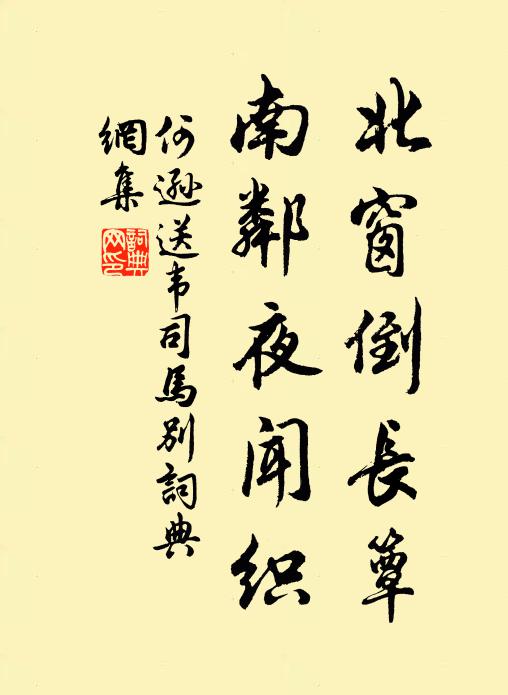 北窗倒長簟
南鄰夜闻织
何遜送韦司馬别詞典
網集
詞典网印